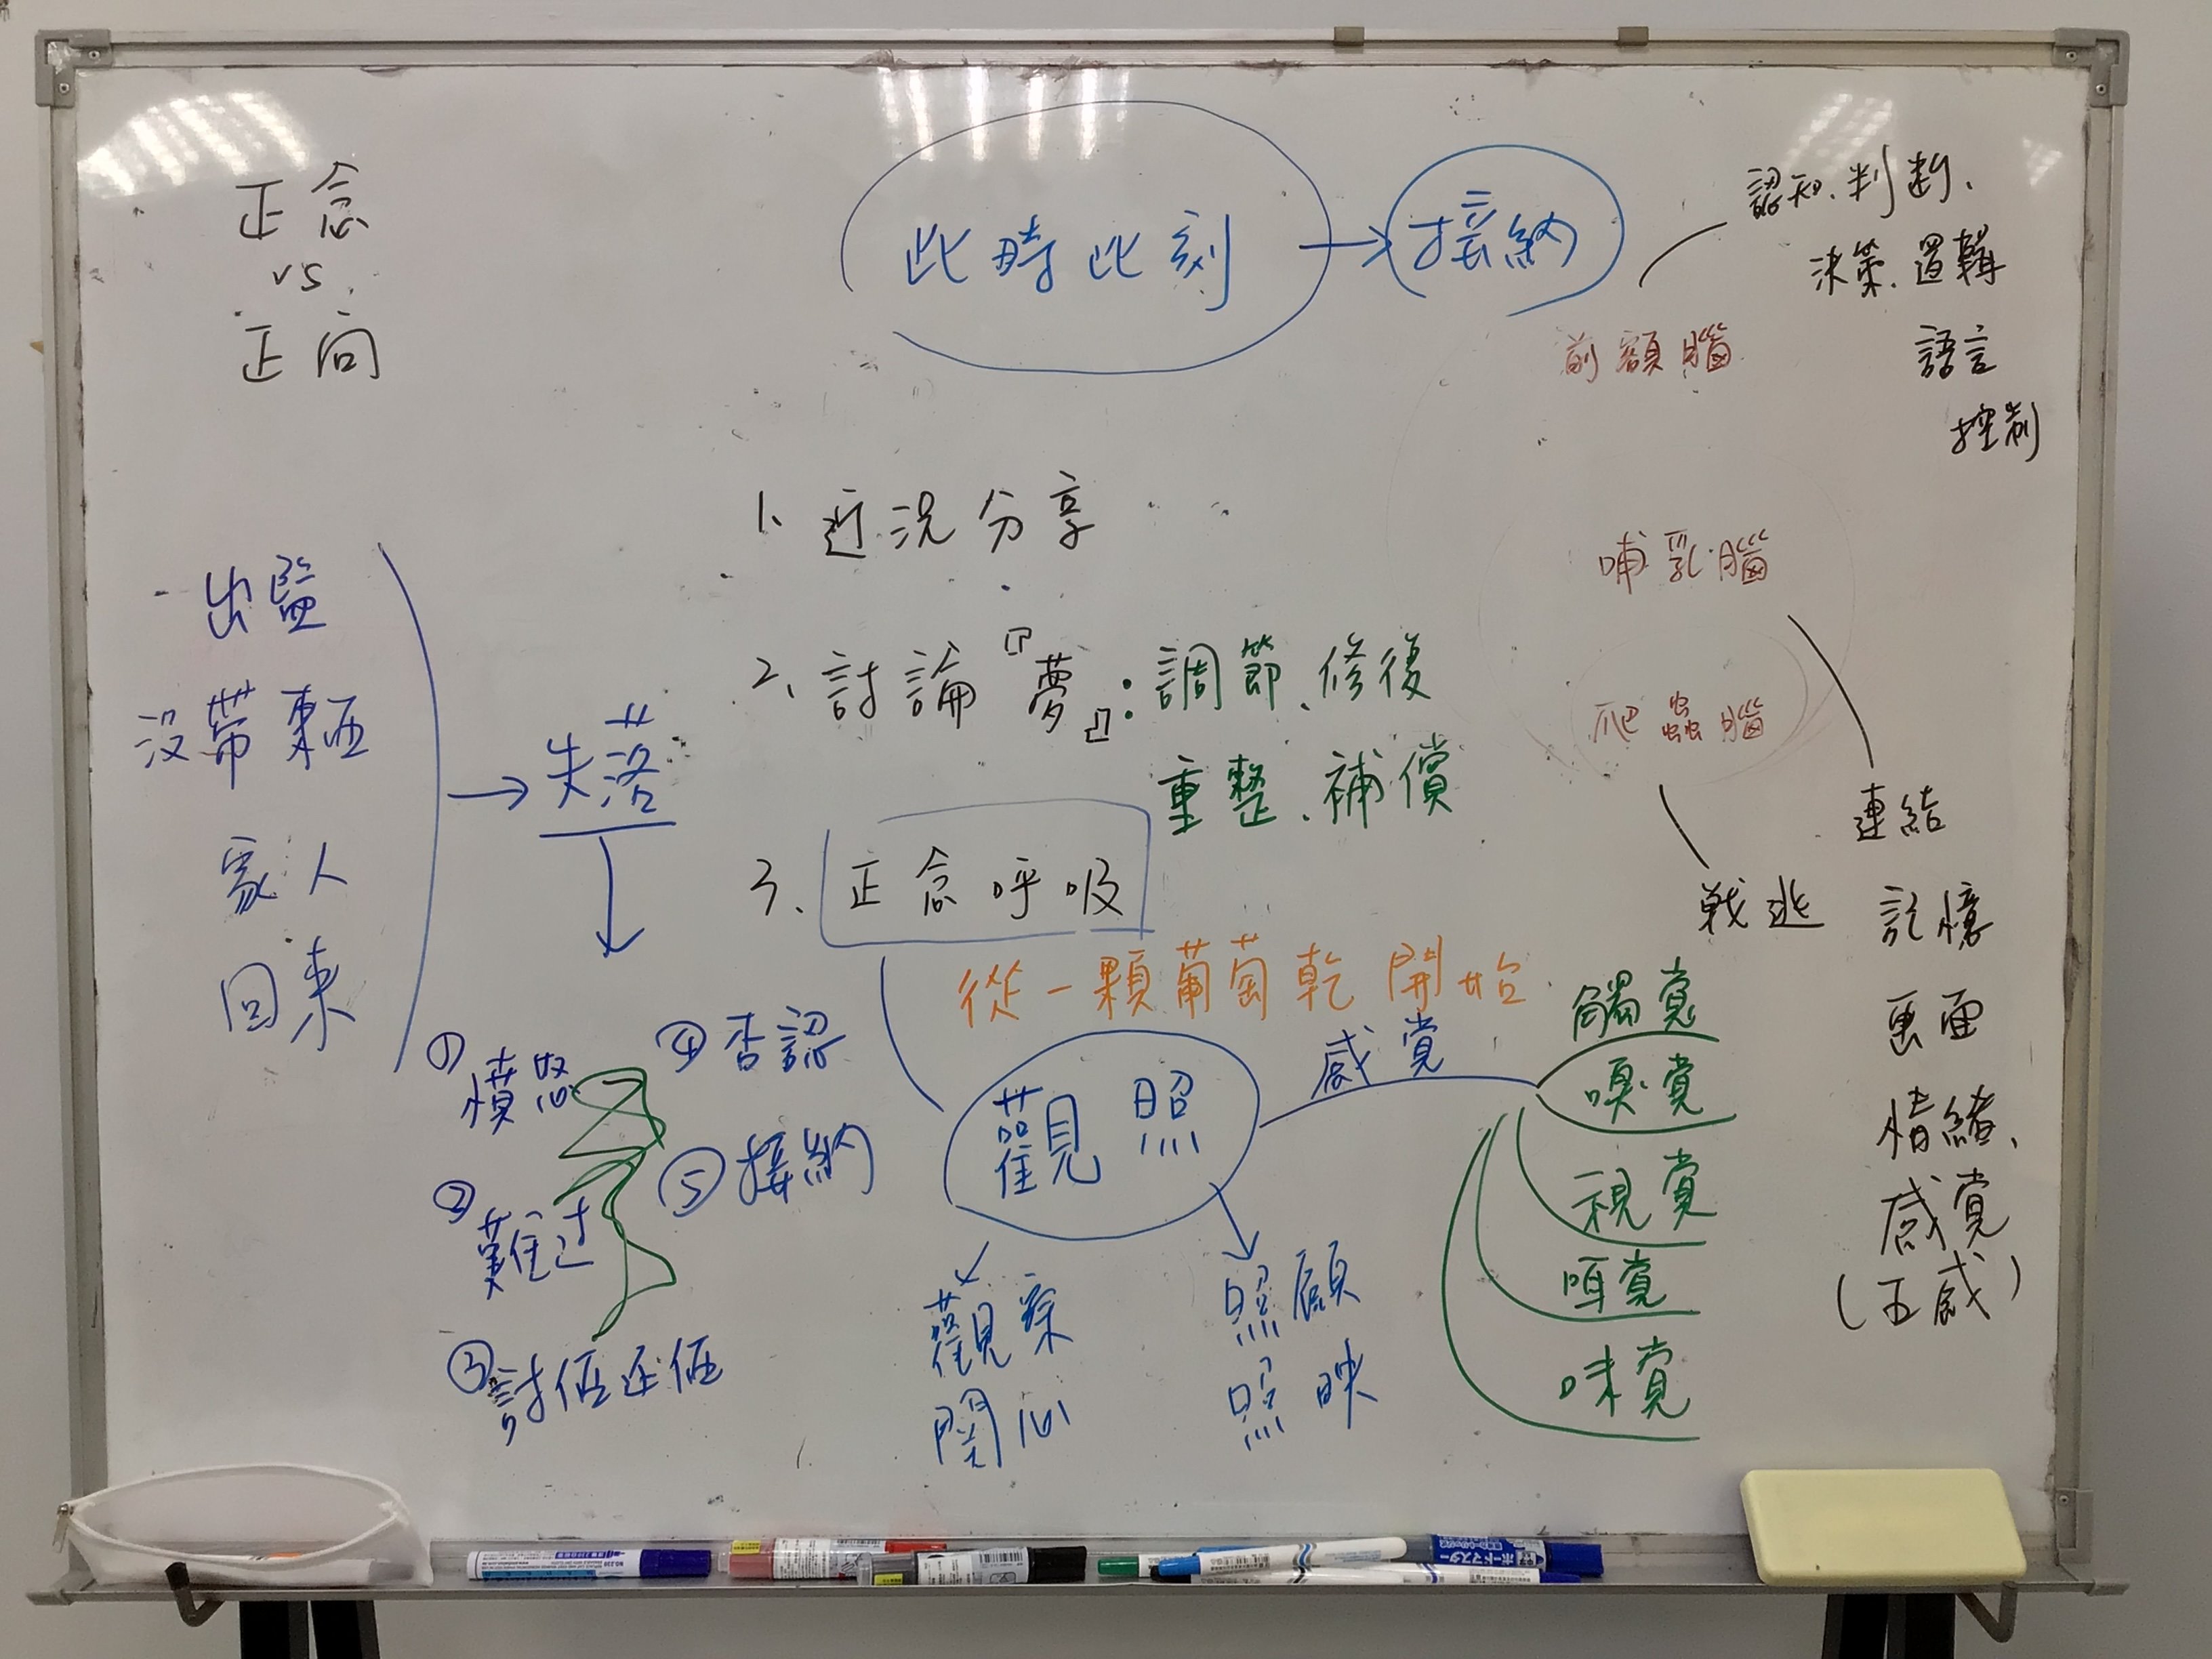 正念
vs
正向
此時此刻 → 接納
認知、判斷、
決策、邏輯
語言
控制
前額腦
哺乳腦
爬蟲腦
戰逃
連結
記憶
畫面
情緒、
感覺
(五感)
1、近況分享
2、討論『夢』:調節、修復
重整、補償
3、正念呼吸
從一顆葡萄乾開始
出監
沒帶東西
家人
回來
→ 失落
① 憤怒
② 難过
③ 討価还価
④ 否認
⑤ 接納
觀照
觀察
関心
照顧
照映
感覺
觸覺
嗅覺
視覺
味覺